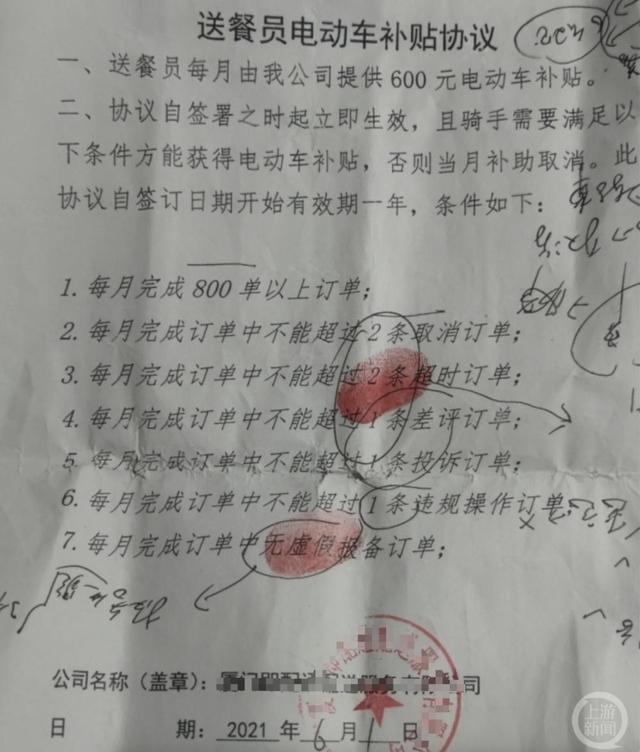 送餐员电动车补贴协议
一、送餐员每月由我公司提供600元电动车补贴。
二、协议自签署之时起立即生效，且骑手需要满足以
下条件方能获得电动车补贴，否则当月补助取消。此
协议自签订日期开始有效期一年，条件如下：
1. 每月完成800单以上订单；
2. 每月完成订单中不能超过2条取消订单；
3. 每月完成订单中不能超过2条超时订单；
4. 每月完成订单中不能超过1条差评订单；
5. 每月完成订单中不能超过1条投诉订单；
6. 每月完成订单中不能超过1条违规操作订单
7. 每月完成订单中无虚假报备订单；
公司名称（盖章）：服务有限公司
日 期：2021年6月1日
上游新闻